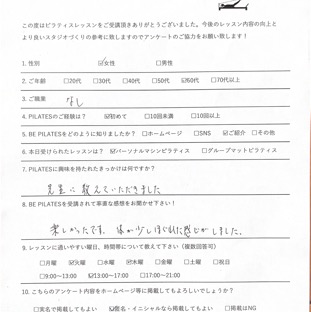 この度はピラティスレッスンをご受講頂きありがとうございました。今後のレッスン内容の向上と
より良いスタジオづくりの参考に致しますのでアンケートのご協力をお願い致します！
1. 性別 ☑女性 □男性
2. ご年齢 □20代 □30代 □40代 □50代 ☑60代 □70代以上
3. ご職業 なし
4. PILATESのご経験は？ ☑初めて □10回未満 □10回以上
5. BE PILATESをどのように知りましたか？ □ホームページ □SNS ☑ご紹介 □その他
6. 本日受けられたレッスンは？ ☑パーソナルマシンピラティス □グループマットピラティス
7. PILATESに興味を持たれたきっかけは何ですか？
先生に教えていただきました
8. BE PILATESを受講されて率直な感想をお聞かせ下さい！
楽しかったです。体が少しほぐれた感じがしました。
9. レッスンに通いやすい曜日、時間帯について教えて下さい（複数回答可）
□月曜 ☑火曜 □水曜 ☑木曜 □金曜 □土曜 □祝日
□9:00〜13:00 ☑13:00〜17:00 □17:00〜21:00
10. こちらのアンケート内容をホームページ等に掲載してもよろしいでしょうか？
□実名で掲載してもよい ☑匿名・イニシャルなら掲載してもよい □掲載はNG